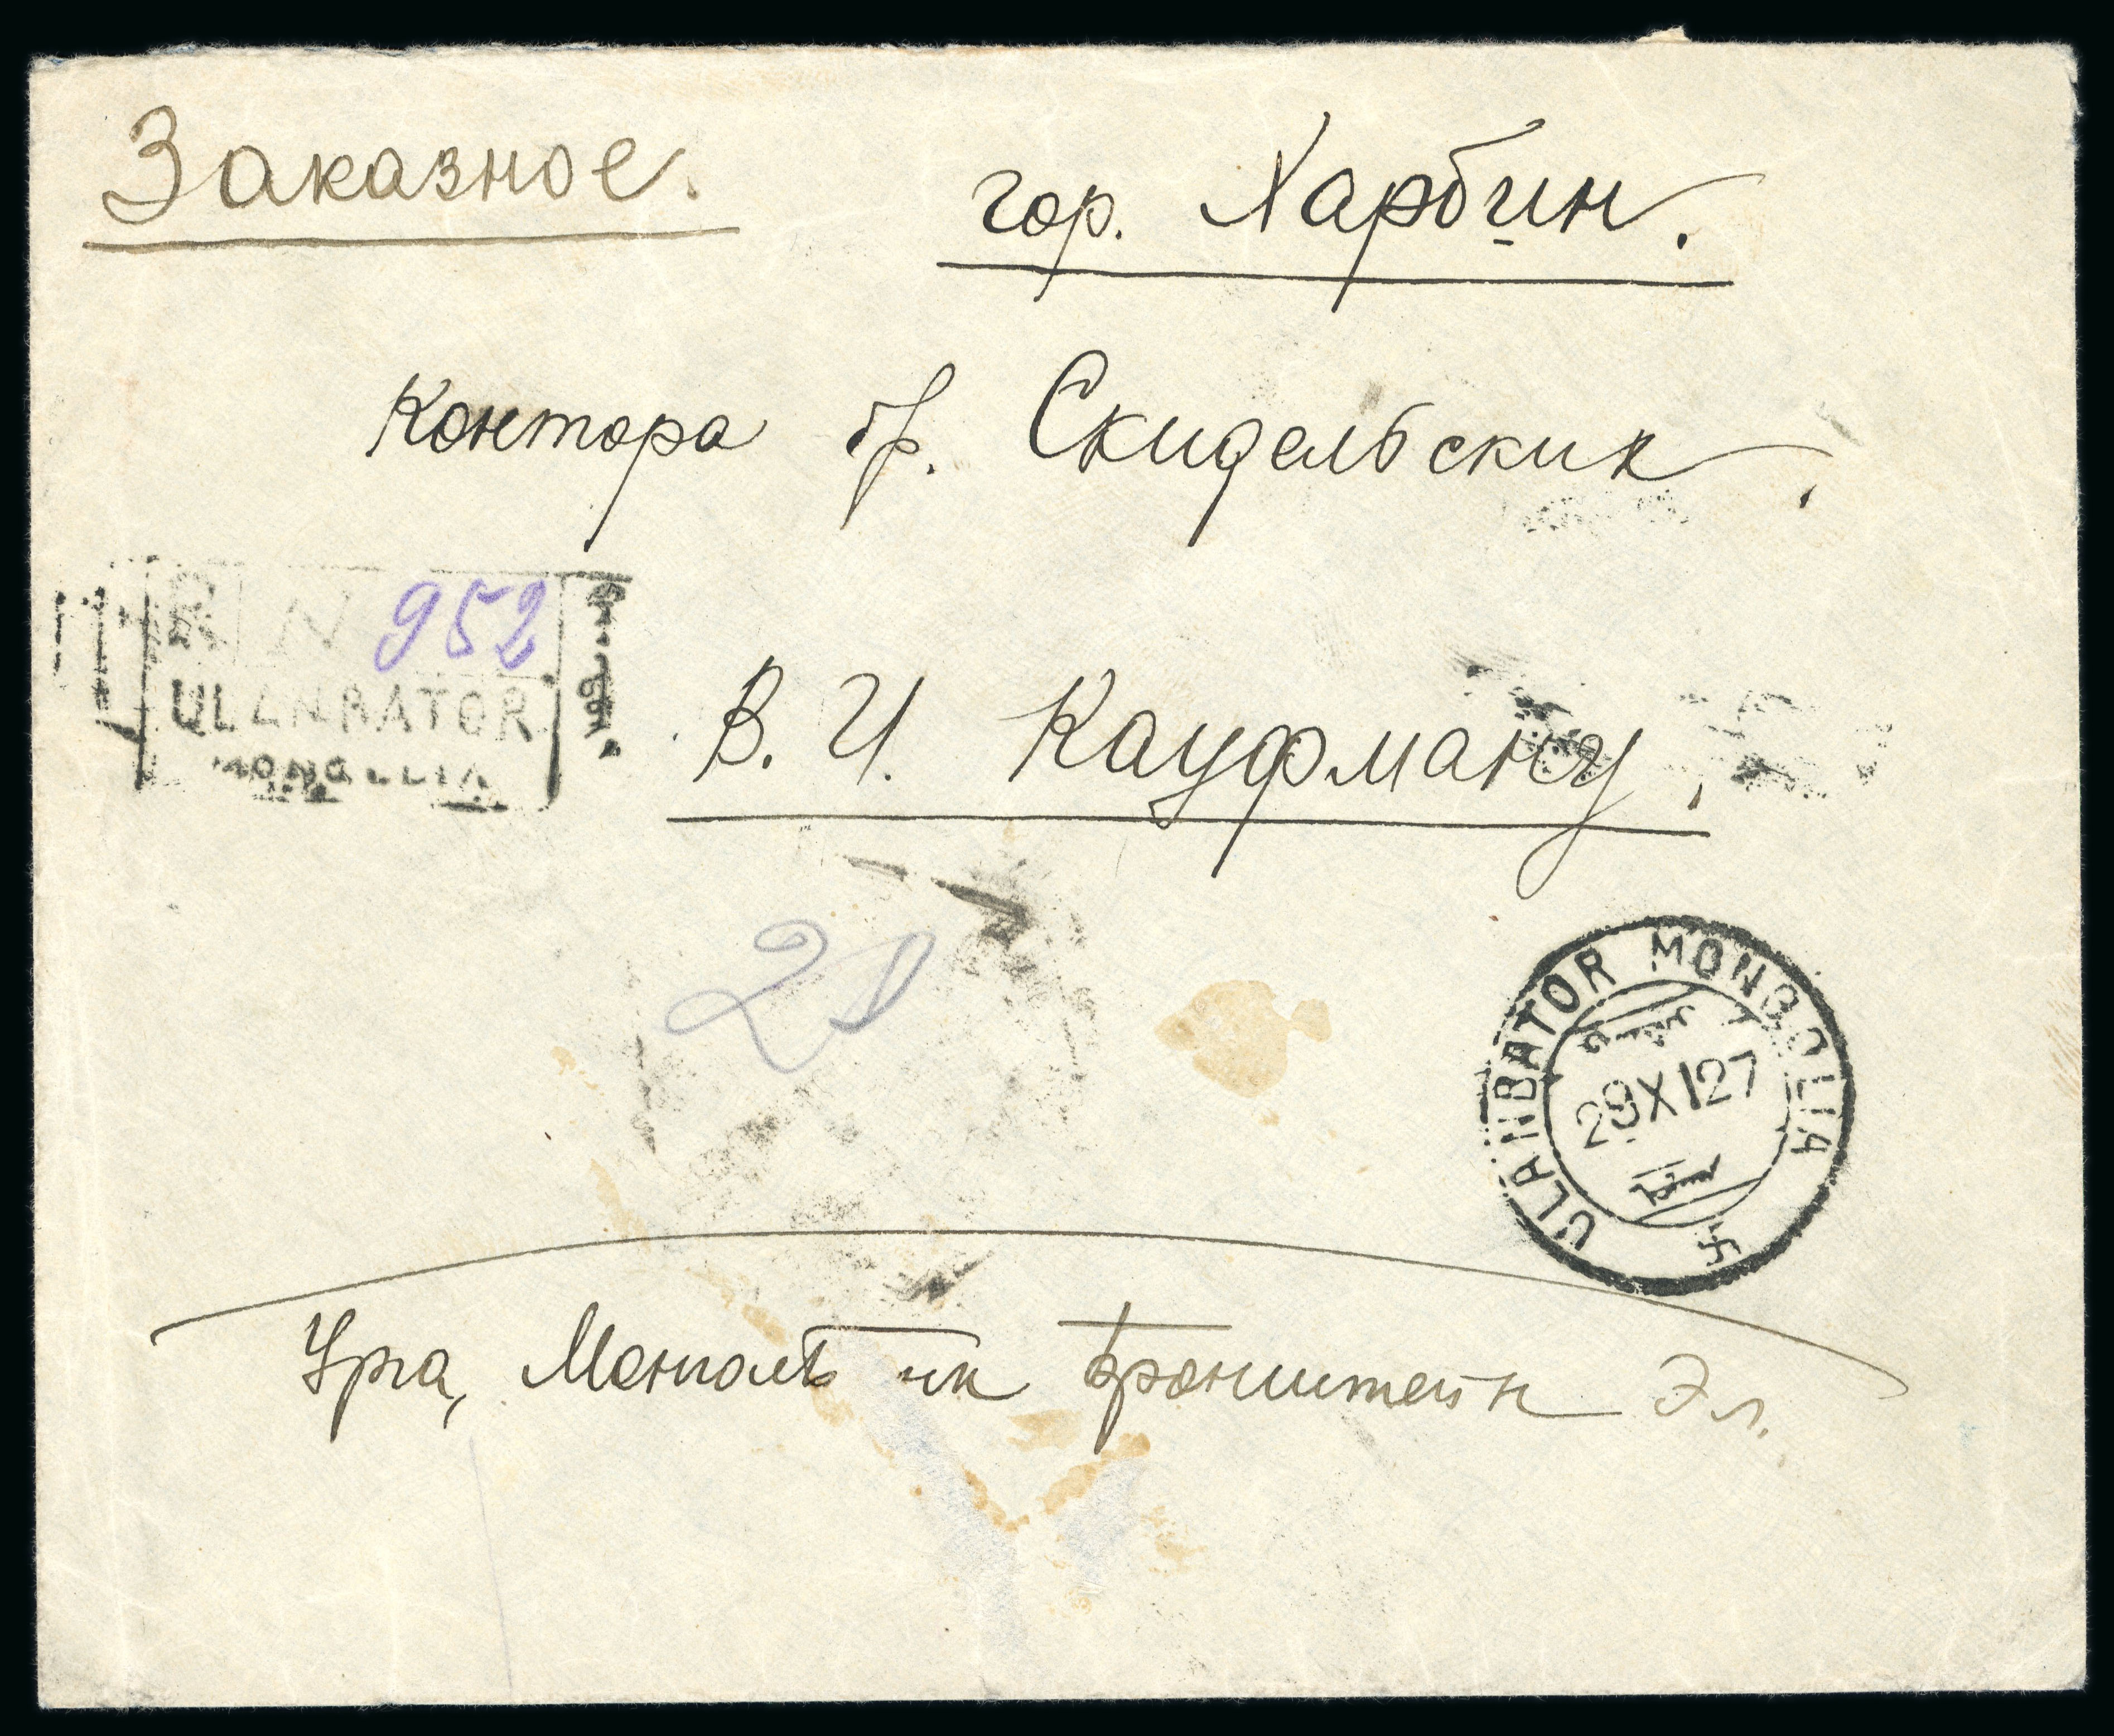 Заказное.
гор. Харбин.
Контора бр. Скидельских,
R N 952
ULANBATOR
MONGOLIA
В. И. Кауфману.
21
ULANBATOR MONGOLIA
29 XI 27
Урга, Монголь Бронштейн Эл.